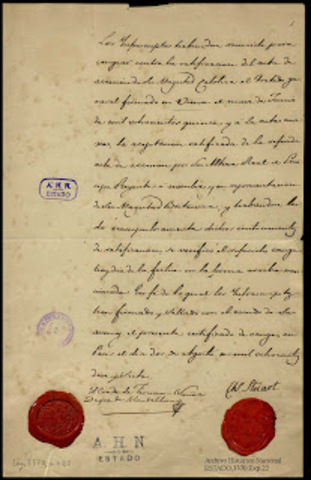 Los Infrascriptos habiendose reunido para
cangear contra la ratificacion del acta de
accesion de Su Magestad Catolica al Tratado ge-
neral firmado en Viena el nueve de Junio
de mil ochocientos quince, y a la
la aceptacion ratificada de la referida
acta de accesion por Su Alteza Real el Prin-
cipe Regente a nombre, y en representacion
de Su Magestad Britanica, y habiendose
dichos instrumentos
de ratificacion, se verificó el referido cange
en el dia de la fecha en la forma acostum
En fe de lo qual los Infrascriptos
han firmado, y sellado con el escudo de sus
armas el presente certificado de cange, en
Paris el dia dos de Agosto de mil ochocientos
diez y siete
El Conde de Fernan Nuñez
Duque de Montellano
Ch. Stuart
A.H.N.
ESTADO
A H N
ESTADO
Archivo Histórico Nacional